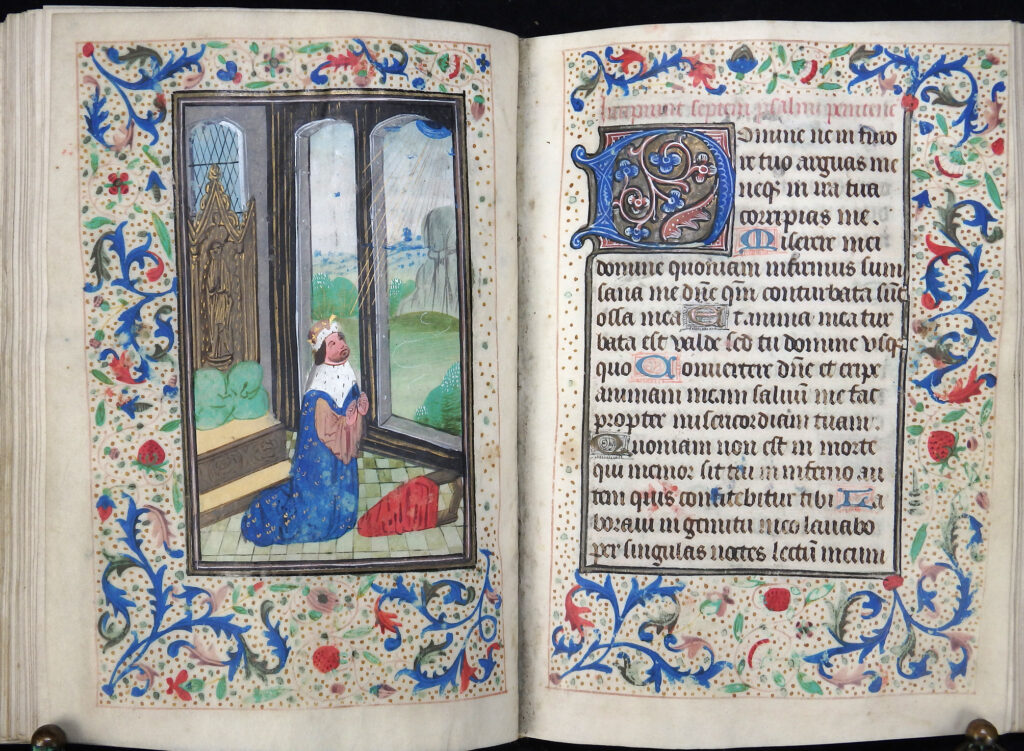 Incipiunt septem psalmi penitenc
Domine ne in furo
re tuo arguas me
neqꝫ in ira tua
corripias me .
Miserere mei
domine quoniam infirmus sum
sana me dn̄e qm̄ conturbata sūt
ossa mea Et anima mea tur
bata est valde sed tu domine vsqꝫ
quo Conuertere dn̄e et eripe
animam meam saluū me fac
propter misericordiam tuam .
Quoniam non est in morte
qui memor sit tui in inferno au
tem quis confitebitur tibi La
boraui in gemitu meo lauabo
per singulas noctes lectū meum